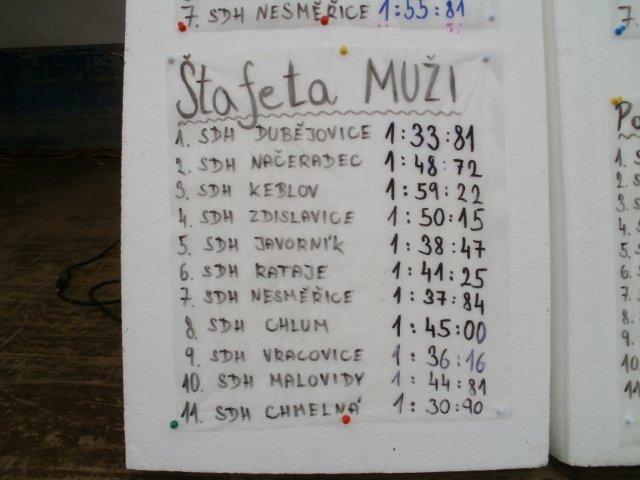 7. SDH NESMĚŘICE 1:55:81
Štafeta MUŽI
1. SDH DUBĚJOVICE 1:33:81
2. SDH NAČERADEC 1:48:72
3. SDH KEBLOV 1:59:22
4. SDH ZDISLAVICE 1:50:15
5. SDH JAVORNÍK 1:38:47
6. SDH RATAJE 1:41:25
7. SDH NESMĚŘICE 1:37:84
8. SDH CHLUM 1:45:00
9. SDH VRACOVICE 1:36:16
10. SDH MALOVIDY 1:44:81
11. SDH CHMELNÁ 1:30:90
7.
1. S
2. S
3. S
4. S
5. S
6. S
7. S
8. S
9.
10.
11